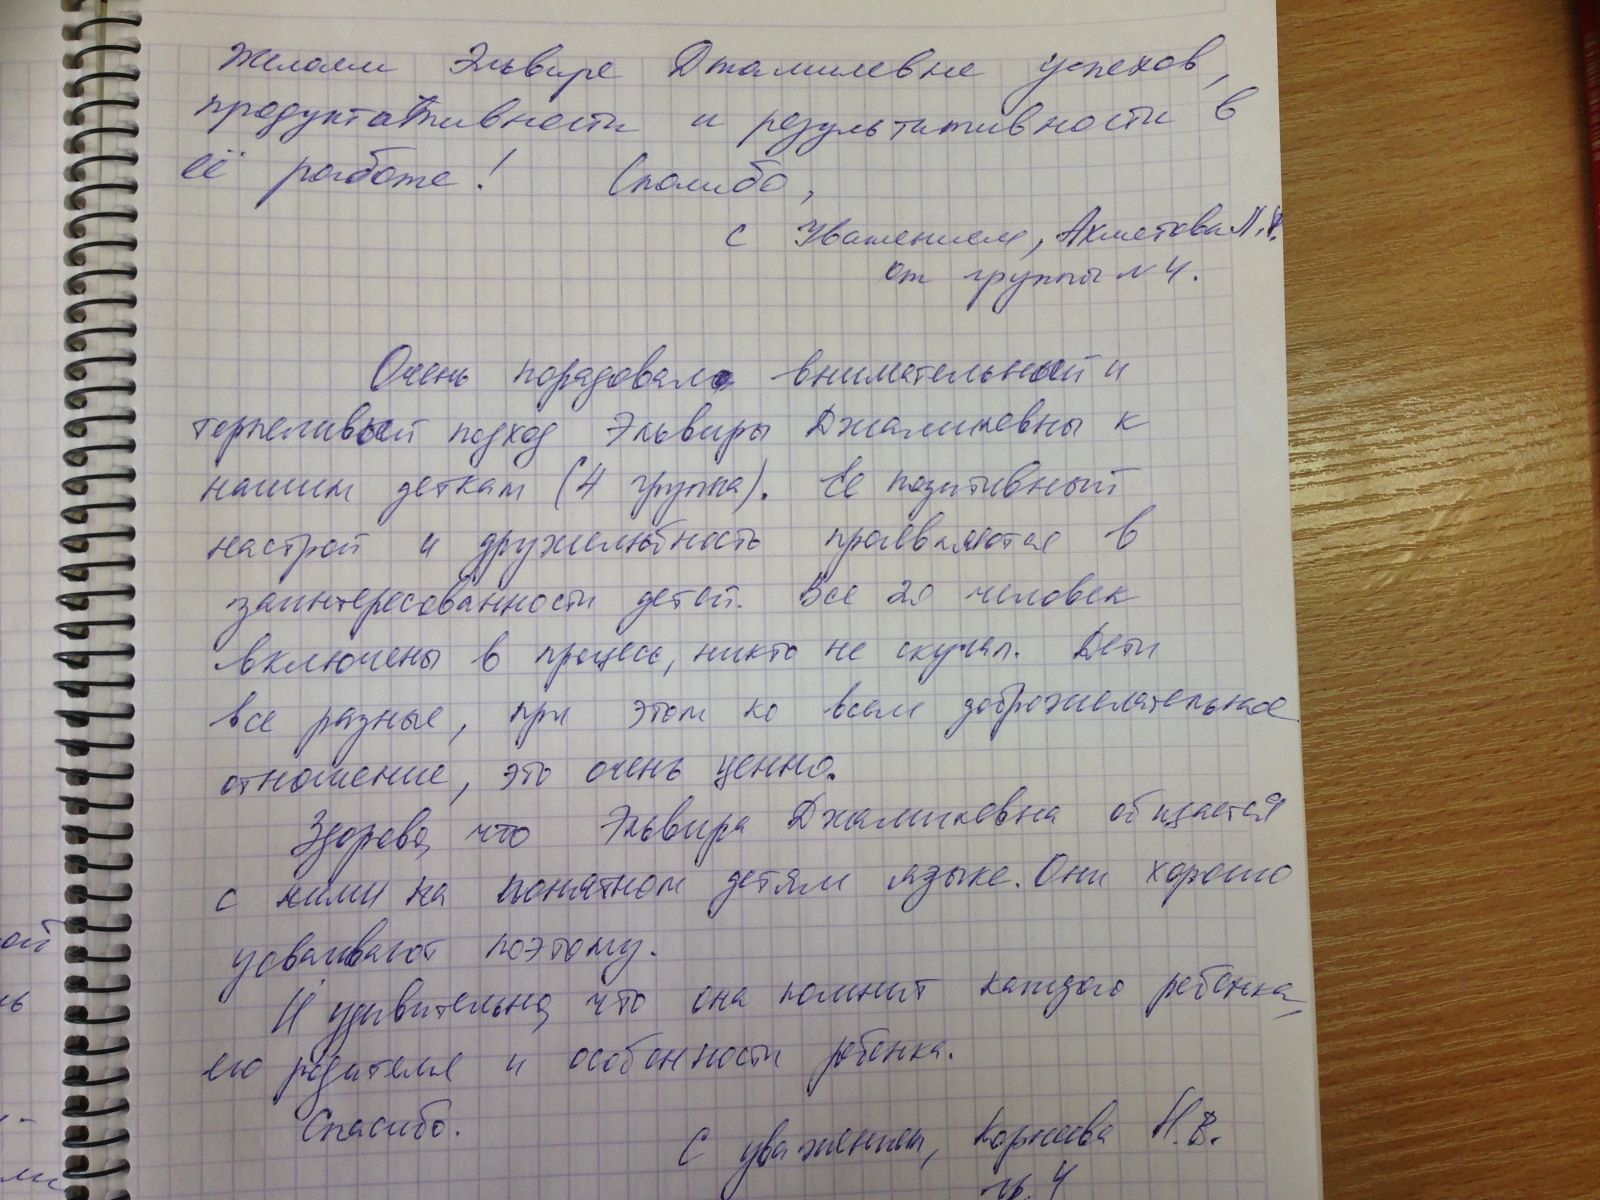 Желаем Эльвире Джамилевне успехов,
продуктативности и результативности в
её работе! Спасибо,
с Уважением, Ахметова
от группы № 4.
Очень порадовал внимательный и
терпеливый подход Эльвиры Джамилевны к
нашим деткам (4 группа). Ее позитивный
настрой и дружелюбность проявляются в
заинтересованности детей. Все 20 человек
включены в процесс, никто не скучал. Дети
все разные, при этом ко всем доброжелательное
отношение, это очень ценно.
Здорово, что Эльвира Джамилевна общается
с ними на понятном детям языке. Они хорошо
усваивают поэтому.
И удивительно, что она помнит каждого ребенка,
его родителя и особенности ребенка.
Спасибо.
С уважением, Н.В.
гр. 4
ой
нь